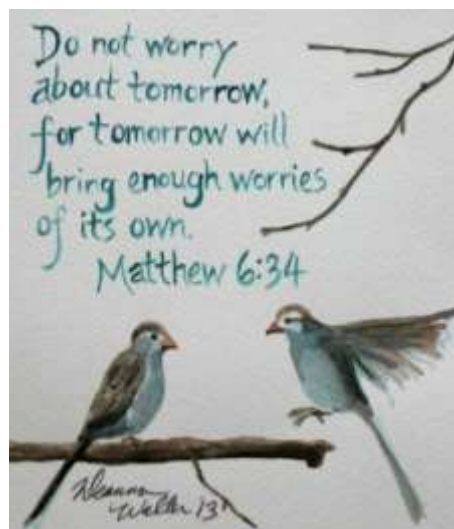 Do not worry
about tomorrow,
for tomorrow will
bring enough worries
of its own.
Matthew 6:34
Deanna
Waller 13'